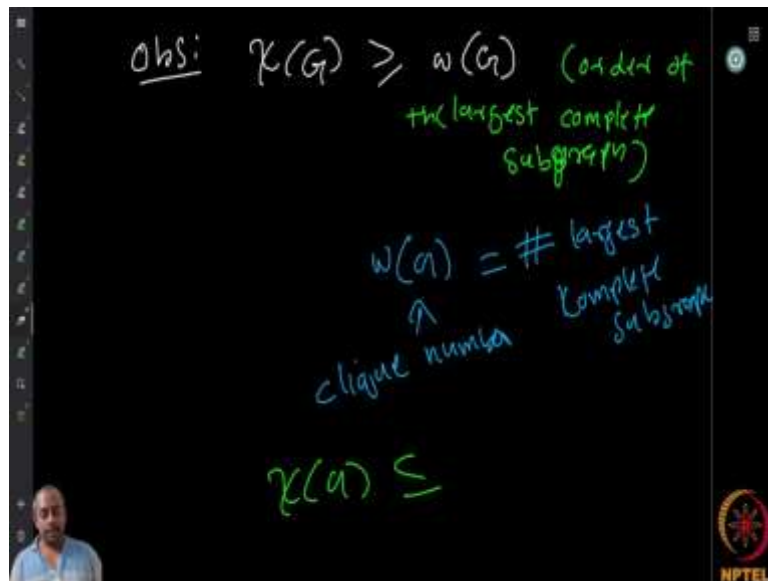 Obs: χ(G) ≥ ω(G) (order of
the largest complete
subgraph)
ω(G) = # largest
complete
subgraph
↑
clique number
χ(G) ≤
NPTEL